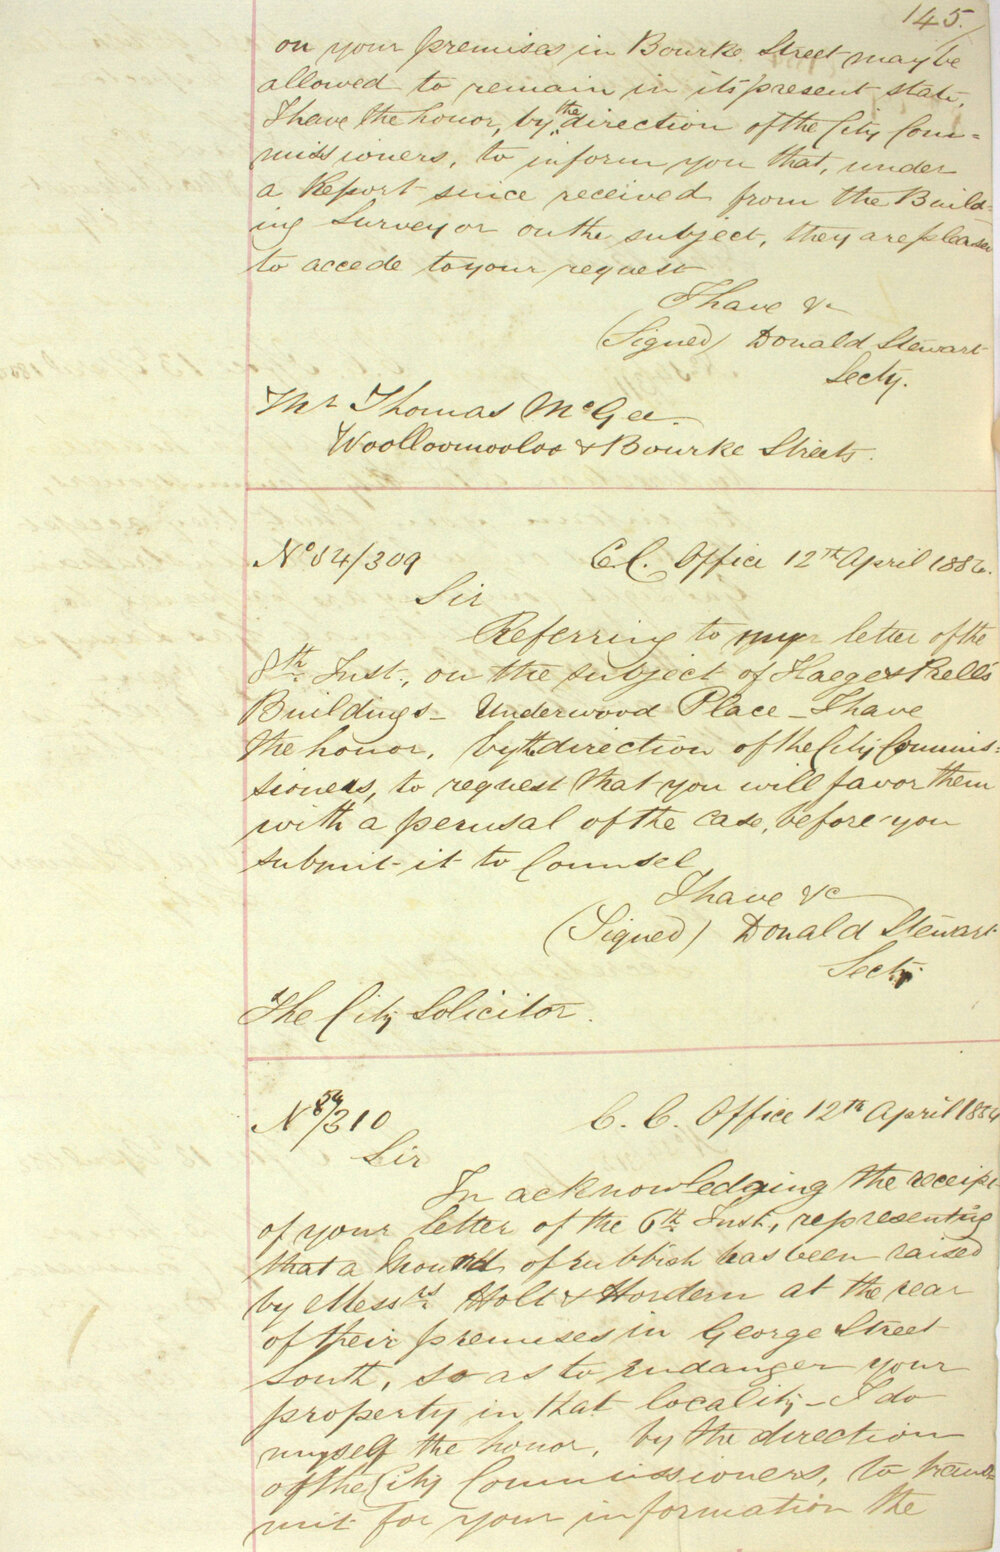 145.
on your premises in Bourke Street may be
allowed to remain in its present state,
I have the honor, by the direction of the City Com=
missioners, to inform you that, under
a Report since received from the Build-
ing Surveyor on the subject, they are pleased
to accede to your request
I have &c
(Signed) Donald Stewart
Secty.
Mr Thomas McGee.
Woolloomooloo & Bourke Streets.
No 54/309
C.C. Office 12th April 1854.
Sir
Referring to my letter of the
8th Inst., on the subject of & Prell's
Buildings - Underwood Place - I have
the honor, by the direction of the City Commis=
sioners, to request that you will favor them
with a perusal of the case, before you
submit it to Counsel
I have &c
(Signed) Donald Stewart
Secty
The City Solicitor.
No 54/310
C. C. Office 12th April 1854
Sir
In acknowledging the receipt
of your letter of the 6th Inst., representing
that a Mound of rubbish has been raised
by Messrs. Holt & Hordern at the rear
of their premises in George Street
South, so as to endanger your
property in that locality - I do
myself the honor, by the direction
of the City Commissioners, to trans=
mit for your information the